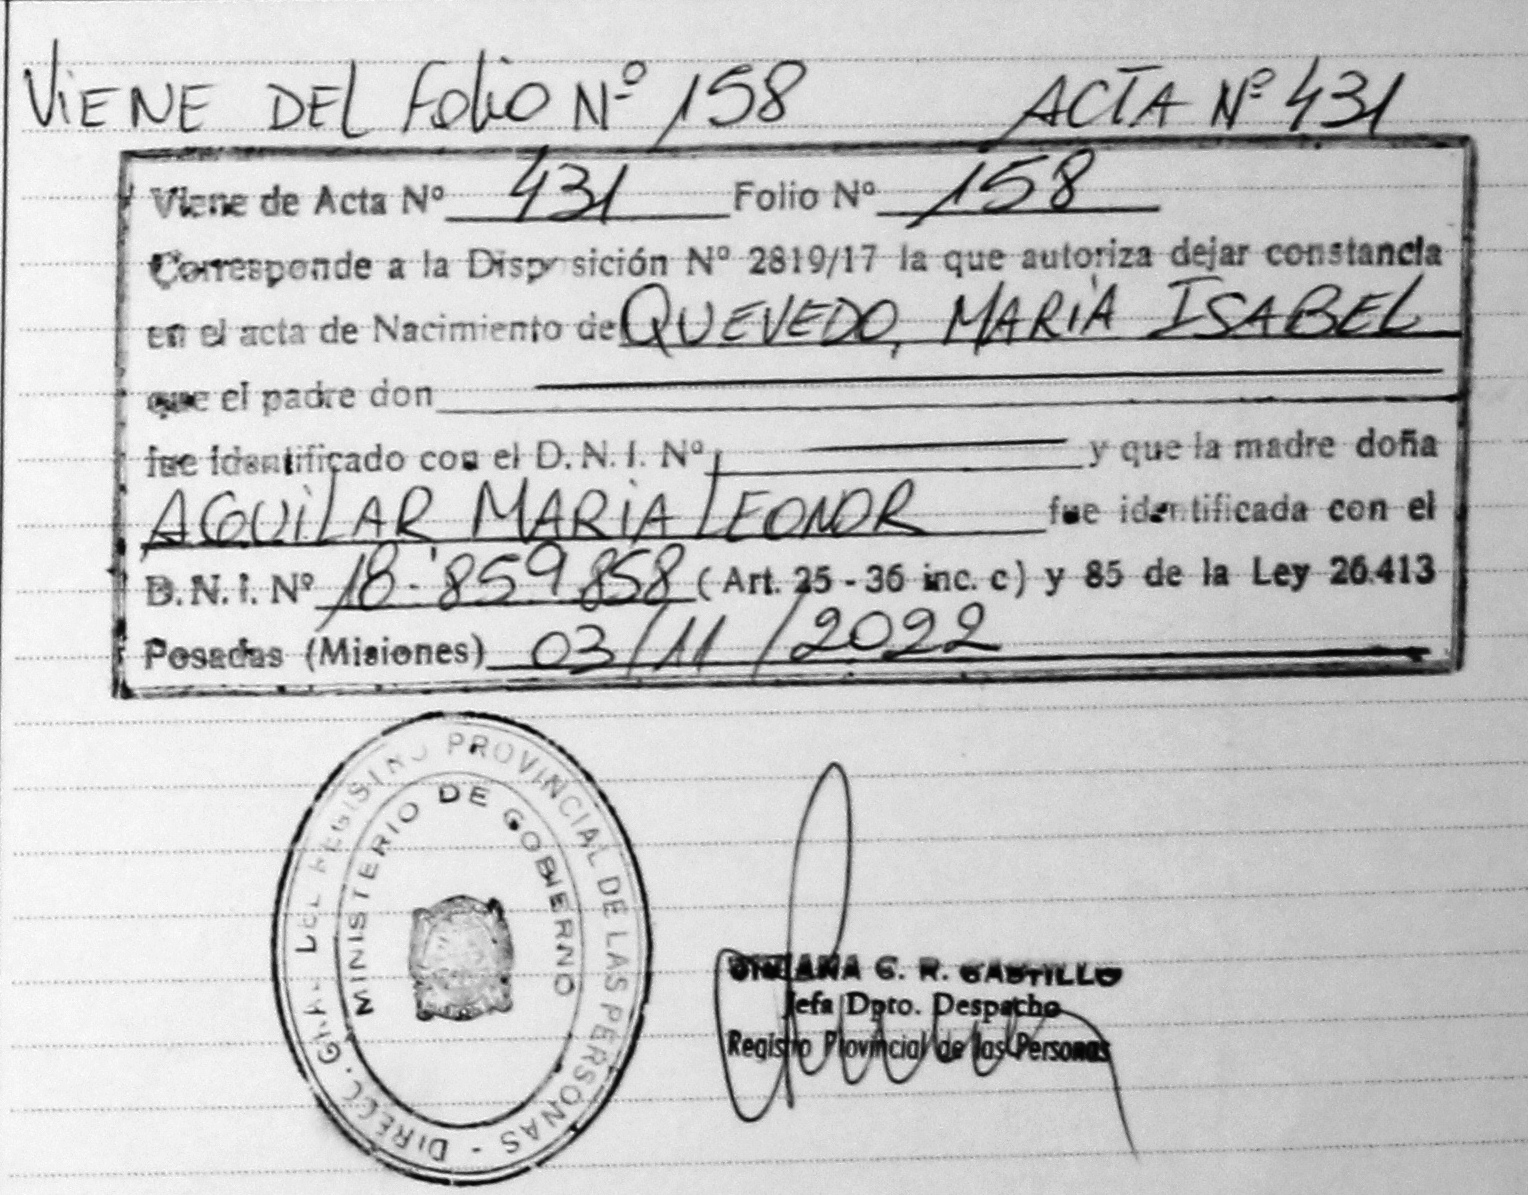 VIENE DEL FOLIO Nº 158 ACTA Nº 431
Viene de Acta Nº 431 Folio Nº 158
Corresponde a la Disposición Nº 2819/17 la que autoriza dejar constancia
en el acta de Nacimiento de QUEVEDO, MARIA ISABEL
que el padre don
fue identificado con el D.N.I. Nº y que la madre doña
AGUILAR MARIA LEONOR fue identificada con el
D.N.I. Nº 18.859.858 (Art. 25 - 36 inc. c) y 85 de la Ley 26.413
Posadas (Misiones) 03/11/2022
DIRECC. GRAL. DEL REGISTRO PROVINCIAL DE LAS PERSONAS -
MINISTERIO DE GOBIERNO
G. R. CASTILLO
Jefa Dpto. Despacho
Registro Provincial de las Personas